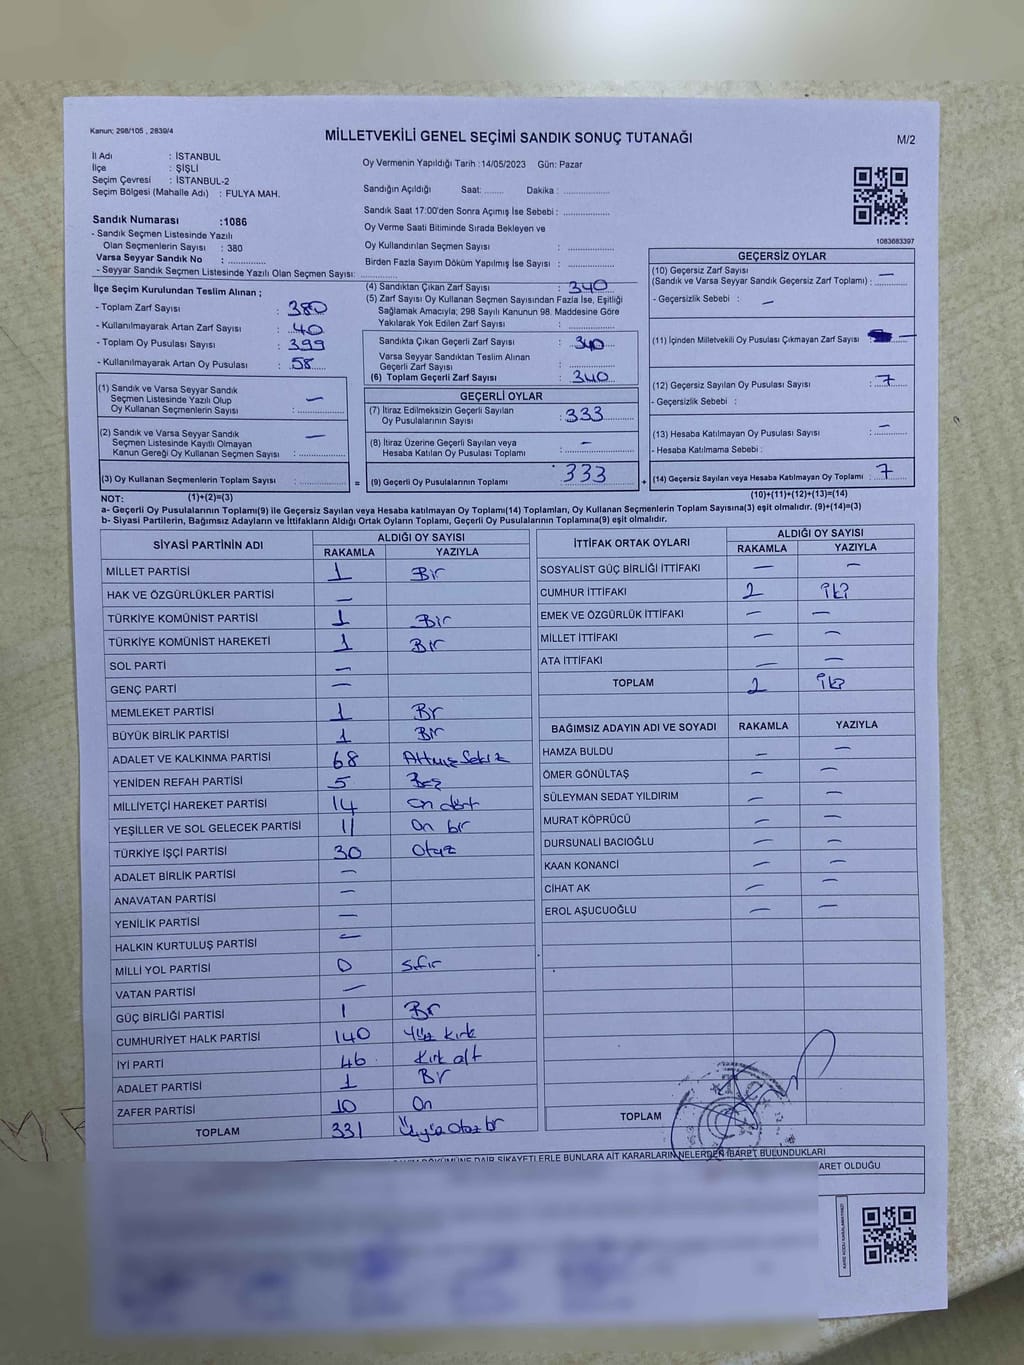 Kanun: 298/105 , 2839/4
MİLLETVEKİLİ GENEL SEÇİMİ SANDIK SONUÇ TUTANAĞI
M/2
İl Adı : İSTANBUL
İlçe : ŞİŞLİ
Seçim Çevresi : İSTANBUL-2
Seçim Bölgesi (Mahalle Adı) : FULYA MAH.
Sandık Numarası :1086
- Sandık Seçmen Listesinde Yazılı
Olan Seçmenlerin Sayısı : 380
Varsa Seyyar Sandık No :
- Seyyar Sandık Seçmen Listesinde Yazılı Olan Seçmen Sayısı:
Oy Vermenin Yapıldığı Tarih :14/05/2023 Gün: Pazar
Sandığın Açıldığı Saat: Dakika :
Sandık Saat 17:00'den Sonra Açımış İse Sebebi :
Oy Verme Saati Bitiminde Sırada Bekleyen ve
Oy Kullandırılan Seçmen Sayısı :
Birden Fazla Sayım Döküm Yapılmış İse Sayısı :
1083683397
İlçe Seçim Kurulundan Teslim Alınan ;
- Toplam Zarf Sayısı : 380
- Kullanılmayarak Artan Zarf Sayısı : 40
- Toplam Oy Pusulası Sayısı : 399
- Kullanılmayarak Artan Oy Pusulası : 58
(1) Sandık ve Varsa Seyyar Sandık
Seçmen Listesinde Yazılı Olup
Oy Kullanan Seçmenlerin Sayısı : —
(2) Sandık ve Varsa Seyyar Sandık
Seçmen Listesinde Kayıtlı Olmayan
Kanun Gereği Oy Kullanan Seçmen Sayısı : —
(3) Oy Kullanan Seçmenlerin Toplam Sayısı :
(4) Sandıktan Çıkan Zarf Sayısı : 340
(5) Zarf Sayısı Oy Kullanan Seçmen Sayısından Fazla İse, Eşitliği
Sağlamak Amacıyla; 298 Sayılı Kanunun 98. Maddesine Göre
Yakılarak Yok Edilen Zarf Sayısı :
Sandıkta Çıkan Geçerli Zarf Sayısı : 340
Varsa Seyyar Sandıktan Teslim Alınan
Geçerli Zarf Sayısı :
(6) Toplam Geçerli Zarf Sayısı : 340
GEÇERLİ OYLAR
(7) İtiraz Edilmeksizin Geçerli Sayılan
Oy Pusulalarının Sayısı : 333
(8) İtiraz Üzerine Geçerli Sayılan veya
Hesaba Katılan Oy Pusulası Toplamı : —
= (9) Geçerli Oy Pusulalarının Toplamı : 333
GEÇERSİZ OYLAR
(10) Geçersiz Zarf Sayısı
(Sandık ve Varsa Seyyar Sandık Geçersiz Zarf Toplamı) : —
- Geçersizlik Sebebi : —
(11) İçinden Milletvekili Oy Pusulası Çıkmayan Zarf Sayısı : —
(12) Geçersiz Sayılan Oy Pusulası Sayısı : 7
- Geçersizlik Sebebi :
(13) Hesaba Katılmayan Oy Pusulası Sayısı : —
- Hesaba Katılmama Sebebi :
+ (14) Geçersiz Sayılan veya Hesaba Katılmayan Oy Toplamı : 7
NOT: (1)+(2)=(3) (10)+(11)+(12)+(13)=(14)
a- Geçerli Oy Pusulalarının Toplamı(9) ile Geçersiz Sayılan veya Hesaba Katılmayan Oy Toplamı(14) Toplamları, Oy Kullanan Seçmenlerin Toplam Sayısına(3) eşit olmalıdır. (9)+(14)=(3)
b- Siyasi Partilerin, Bağımsız Adayların ve İttifakların Aldığı Ortak Oyların Toplamı, Geçerli Oy Pusulalarının Toplamına(9) eşit olmalıdır.
SİYASİ PARTİNİN ADI ALDIĞI OY SAYISI
RAKAMLA YAZIYLA
MİLLET PARTİSİ 1 Bir
HAK VE ÖZGÜRLÜKLER PARTİSİ —
TÜRKİYE KOMÜNİST PARTİSİ 1 Bir
TÜRKİYE KOMÜNİST HAREKETİ 1 Bir
SOL PARTİ —
GENÇ PARTİ —
MEMLEKET PARTİSİ 1 Br
BÜYÜK BİRLİK PARTİSİ 1 Bir
ADALET VE KALKINMA PARTİSİ 68 Altmış Sekiz
YENİDEN REFAH PARTİSİ 5 Beş
MİLLİYETÇİ HAREKET PARTİSİ 14 on dört
YEŞİLLER VE SOL GELECEK PARTİSİ 11 On bir
TÜRKİYE İŞÇİ PARTİSİ 30 Otuz
ADALET BİRLİK PARTİSİ —
ANAVATAN PARTİSİ —
YENİLİK PARTİSİ —
HALKIN KURTULUŞ PARTİSİ —
MİLLİ YOL PARTİSİ 0 Sıfır
VATAN PARTİSİ —
GÜÇ BİRLİĞİ PARTİSİ 1 Br
CUMHURİYET HALK PARTİSİ 140 Yüz kırk
İYİ PARTİ 46 Kırk altı
ADALET PARTİSİ 1 Br
ZAFER PARTİSİ 10 On
TOPLAM 331 Üçyüz Otuz br
İTTİFAK ORTAK OYLARI ALDIĞI OY SAYISI
RAKAMLA YAZIYLA
SOSYALİST GÜÇ BİRLİĞİ İTTİFAKI — —
CUMHUR İTTİFAKI 2 iki
EMEK VE ÖZGÜRLÜK İTTİFAKI — —
MİLLET İTTİFAKI — —
ATA İTTİFAKI — —
TOPLAM 2 iki
BAĞIMSIZ ADAYIN ADI VE SOYADI RAKAMLA YAZIYLA
HAMZA BULDU — —
ÖMER GÖNÜLTAŞ — —
SÜLEYMAN SEDAT YILDIRIM — —
MURAT KÖPRÜCÜ — —
DURSUNALİ BACIOĞLU — —
KAAN KONANCİ — —
CİHAT AK — —
EROL AŞUCUOĞLU — —
TOPLAM
DÖKÜMÜNE DAİR ŞİKAYETLERLE BUNLARA AİT KARARLARIN NELERDEN İBARET BULUNDUKLARI
ARET OLDUĞU